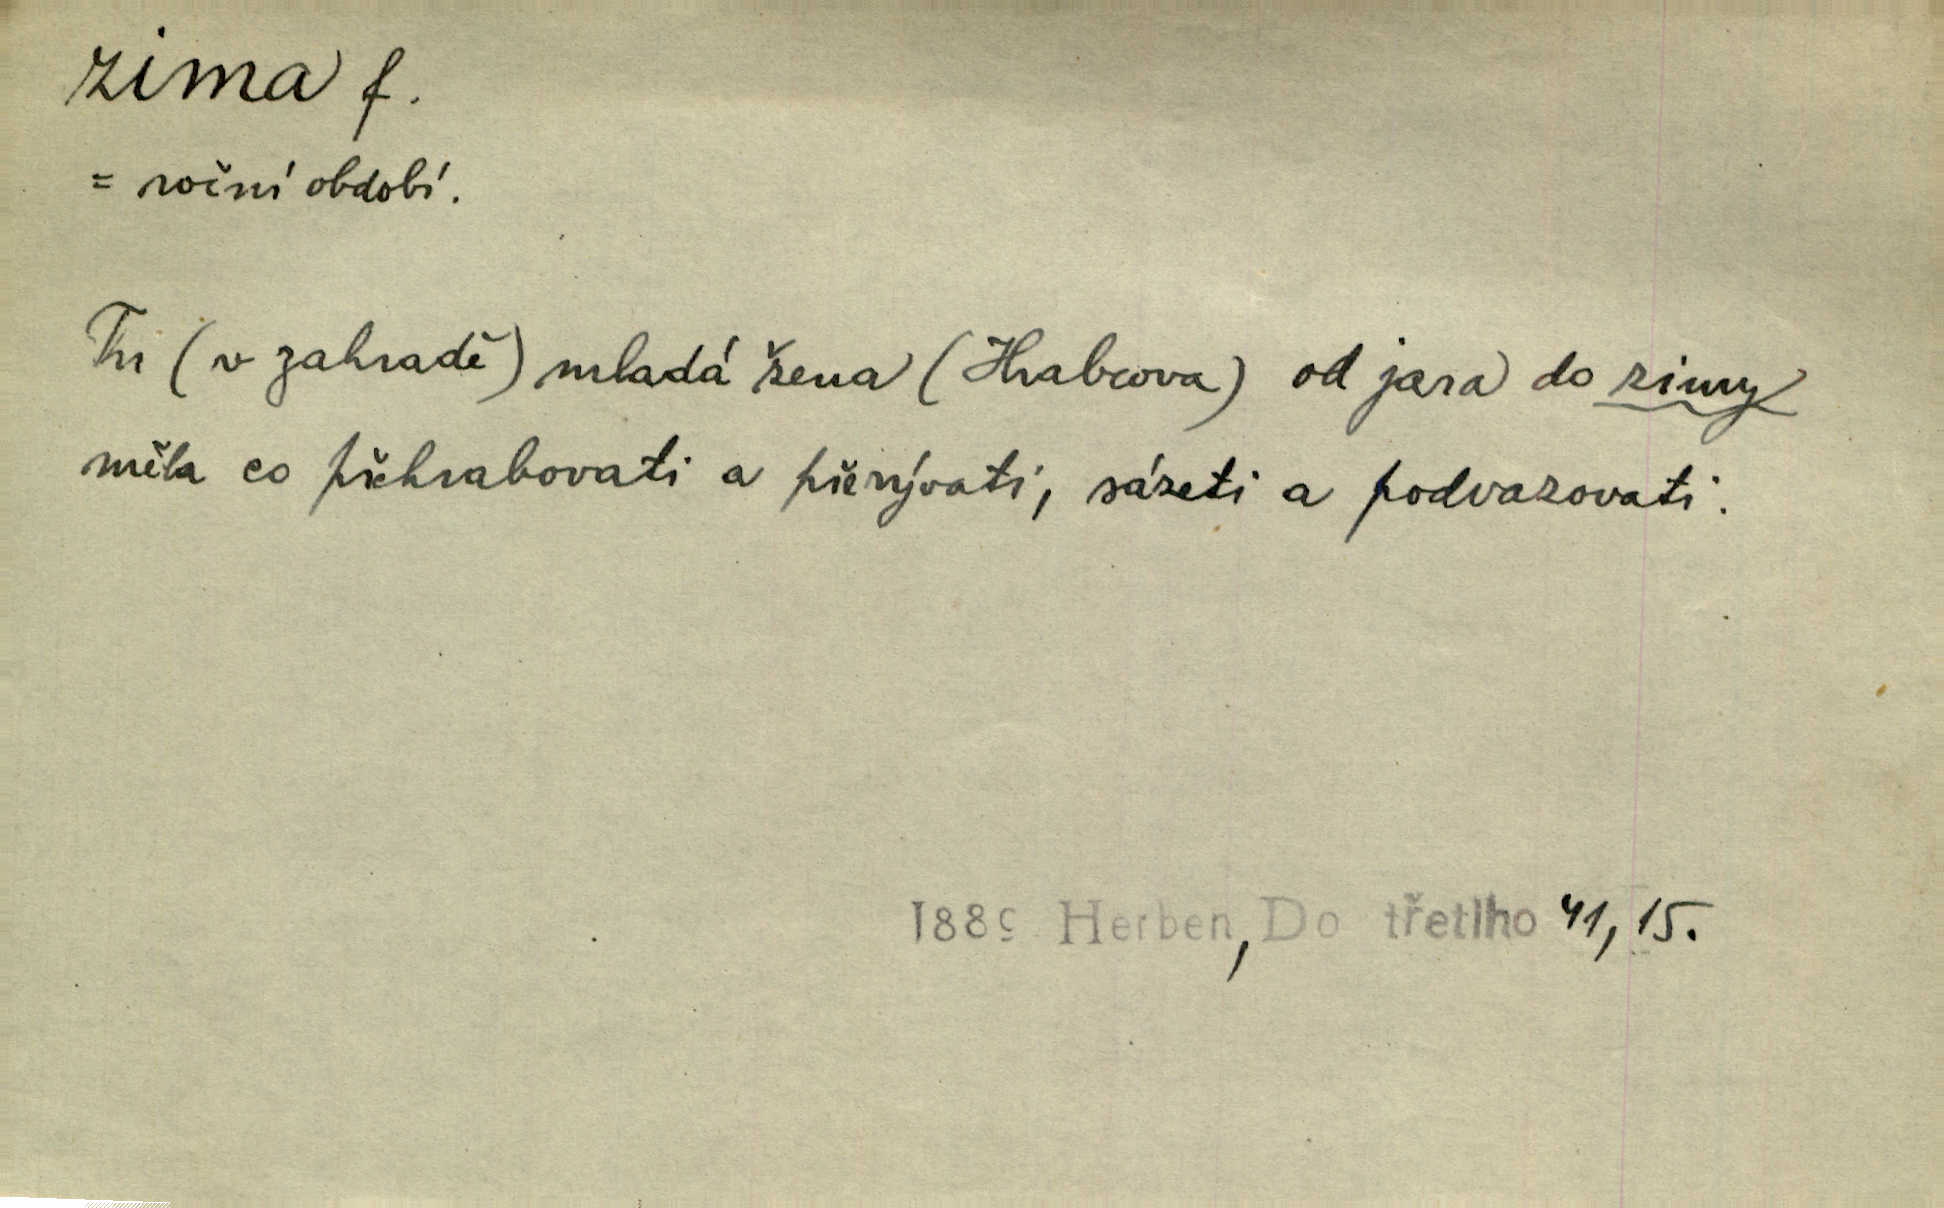 zima f.
= roční období.
Tu (v zahradě) mladá žena (Hrabcova) od jara do zimy
měla co přehrabovati a přerývati, sázeti a podvazovati.
1889 Herben, Do třetího 41, 15.